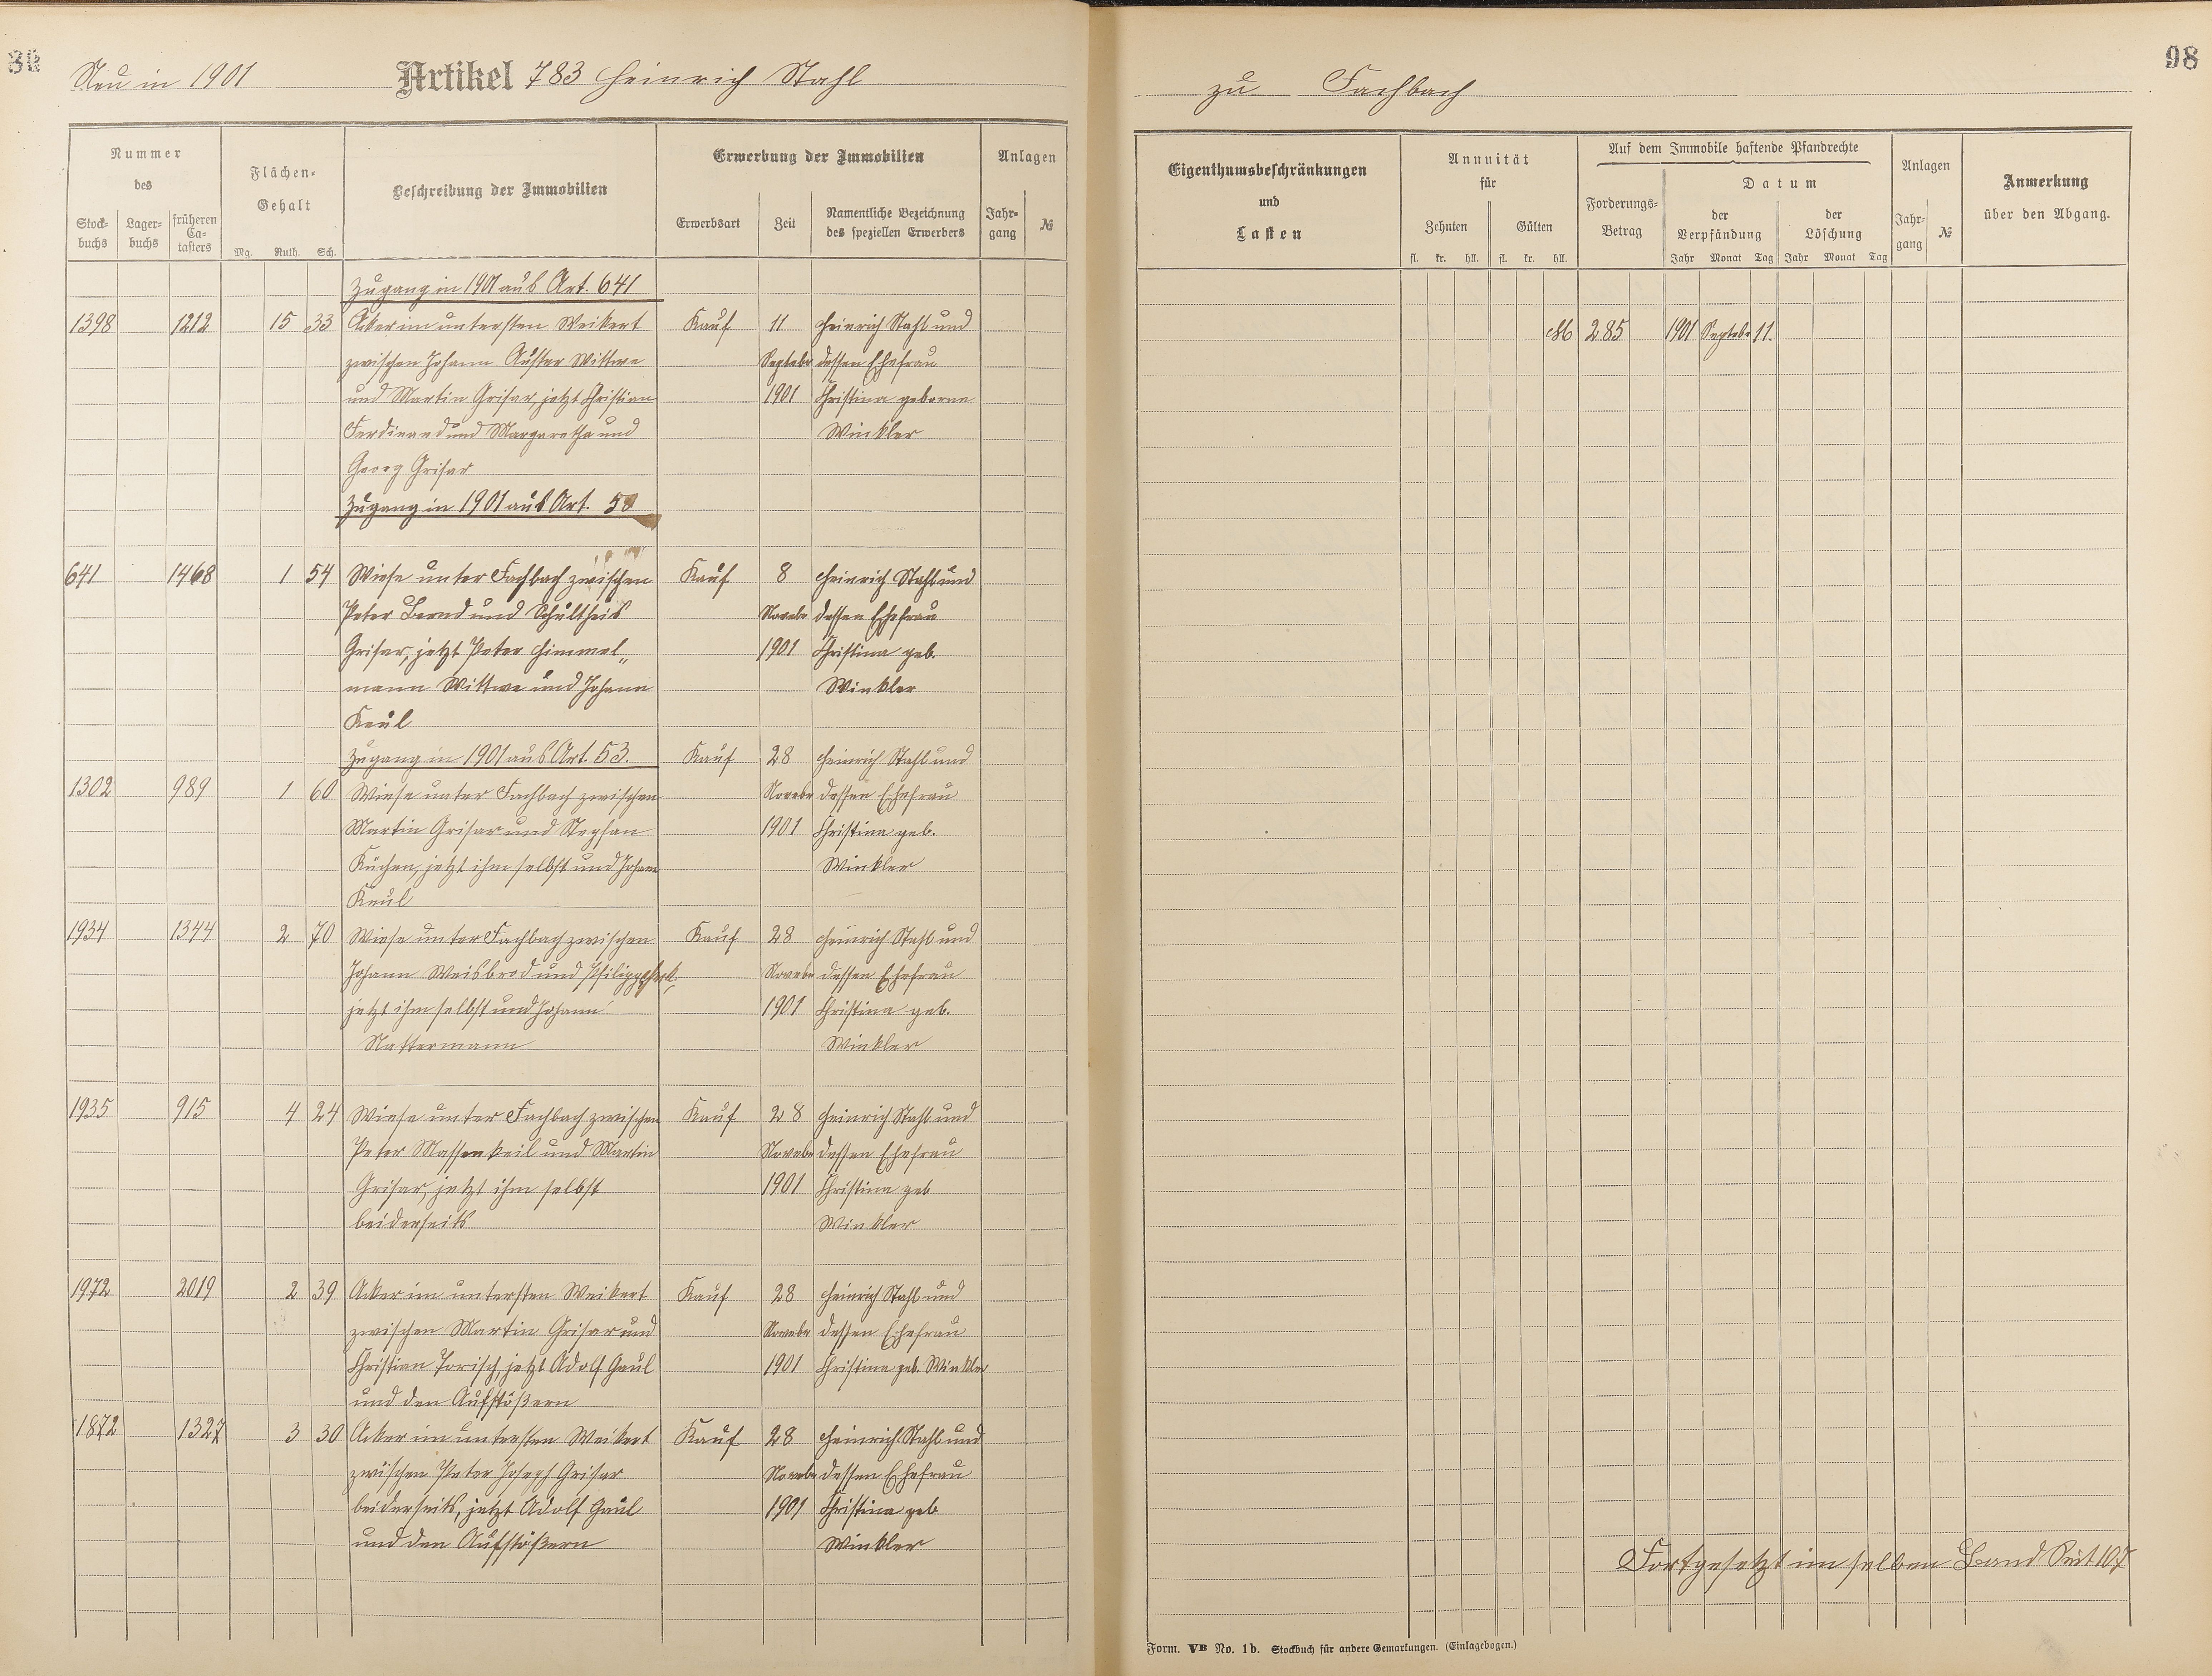 Neu in 1901 Artikel 783 Heinrich Stahl
Nummer des
Stockbuchs Lagerbuchs früheren Catasters
Flächen-Gehalt
Mg. Ruth. Sch.
Beschreibung der Immobilien
Erwerbung der Immobilien
Erwerbsart Zeit Namentliche Bezeichnung des speziellen Erwerbers
Anlagen
Jahrgang №
Zugang in 1901 aus Art. 641
1398 1212 15 33 Acker im untersten Weikert Kauf 11 Heinrich Stahl und
zwischen Johann Auster Wittwe Septebr dessen Ehefrau
und Martin Grisar, jetzt Christian 1901 Christina geborne
Ferdinand und Margaretha und Winkler
Georg Grisar
Zugang in 1901 aus Art. 50
641 1468 1 54 Wiese unter Fachbach zwischen Kauf 8 Heinrich Stahl und
Peter Bernd und Schultheis Novebr dessen Ehefrau
Grisar, jetzt Peter Himmel„ 1901 Christina geb.
mann Wittwe und Johann Winkler
Keul
Zugang in 1901 aus Art. 53. Kauf 28 Heinrich Stahl und
1302 989 1 60 Wiese unter Fachbach zwischen Novebr dessen Ehefrau
Martin Grisar und Stephan 1901 Christina geb.
Küchen, jetzt ihm selbst und Johann Winkler
Keul
1934 1344 2 70 Wiese unter Fachbach zwischen Kauf 28 Heinrich Stahl und
Johann Weisbrod und Philipp Novebr dessen Ehefrau
jetzt ihm selbst und Johann 1901 Christina geb.
Nattermann Winkler
1935 915 4 24 Wiese unter Fachbach zwischen Kauf 28 Heinrich Stahl und
Peter Massenkeil und Martin Novebr dessen Ehefrau
Grisar, jetzt ihm selbst 1901 Christina geb
beiderseits Winkler
1972 2019 2 39 Acker im untersten Weikert Kauf 28 Heinrich Stahl und
zwischen Martin Grisar und Novebr dessen Ehefrau
Christian Torisch, jetzt Adolf Gaul 1901 Christina geb. Winkler
und den Aufstößern
1872 1327 3 30 Acker im untersten Weikert Kauf 28 Heinrich Stahl und
zwischen Peter Joseph Grisar Novebr dessen Ehefrau
beiderseits, jetzt Adolf Gaul 1901 Christina geb
und den Aufstößern Winkler
98
zu Fachbach
Eigenthumsbeschränkungen und Lasten
Annuität für
Zehnten Gülten
fl. kr. hll. fl. kr. hll.
Auf dem Immobile haftende Pfandrechte
Forderungs-Betrag
Datum
der Verpfändung der Löschung
Jahr Monat Tag Jahr Monat Tag
Anlagen
Jahrgang №
Anmerkung
über den Abgang.
M 285 1901 Septebr 11.
Fortgesetzt im selben Band Seit 107
Form. VB No. 1b. Stockbuch für andere Gemarkungen. (Einlagebogen.)